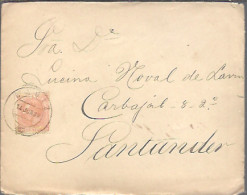 Sra Dª
Lucina Noval de
Carbajal - 2 - 2º
Santander